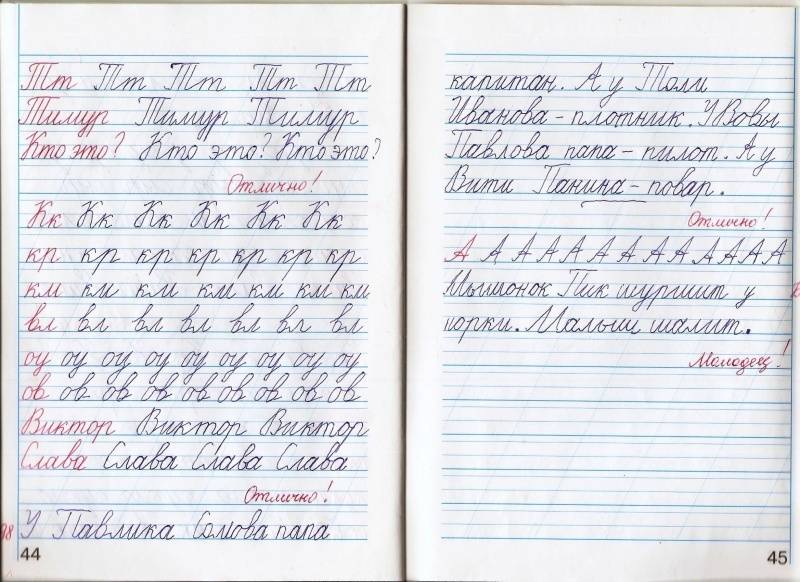 Тт Тт Тт Тт Тт
Тимур Тимур Тимур
Кто это? Кто это? Кто это?
Отлично!
Кк Кк Кк Кк Кк Кк
кр кр кр кр кр кр кр
км км км км км км км
вл вл вл вл вл вл вл
оу оу оу оу оу оу оу оу оу
ов ов ов ов ов ов ов ов ов
Виктор Виктор Виктор
Слава Слава Слава Слава
Отлично!
У Павлика Сомова папа
44
капитан. А у Толи
Иванова – плотник. У Вовы
Павлова папа – пилот. А у
Вити Панина – повар.
Отлично!
А А А А А А А А А А А А
Мышонок Пик шуршит у
норки. Малыш шалит.
Молодец!
45